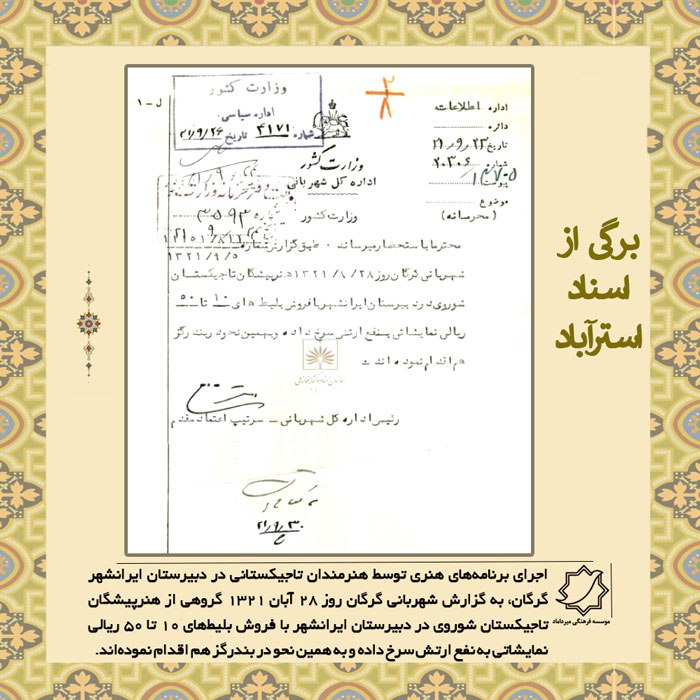 وزارت کشور
اداره سیاسی
شماره ۴۱۷۱ تاریخ ۲۱/۹/۲۶
ل - ۱
۲
۸
اداره اطلاعات
دائره
تاریخ ۲۱/۹/۲۳
شماره ۲۰۳۰۶
پیوست
موضوع
(محرمانه)
وزارت کشور
اداره کل شهربانی
وزارت کشور
محترما باستحضار میرساند . طبق گزارش شماره
۱۳۲۱/۹/۵
شهربانی گرگان روز ۱۳۲۱/۸/۲۸ هنرپیشگان تاجیکستان
شوروی در دبیرستان ایرانشهر با فروش بلیط های ۱۰ تا ۵۰
ریالی نمایشاتی بنفع ارتش سرخ داده و بهمین نحو در بندر گز
هم اقدام نموده اند
رئیس اداره کل شهربانی - سرتیپ اعتماد مقدم
۲۱/۹/۳۰
برگی از
اسناد
استرآباد
اجرای برنامه‌های هنری توسط هنرمندان تاجیکستانی در دبیرستان ایرانشهر
گرگان، به گزارش شهربانی گرگان روز ۲۸ آبان ۱۳۲۱ گروهی از هنرپیشگان
تاجیکستان شوروی در دبیرستان ایرانشهر با فروش بلیط‌های ۱۰ تا ۵۰ ریالی
نمایشاتی به نفع ارتش سرخ داده و به همین نحو در بندرگز هم اقدام نموده‌اند.
موسسه فرهنگی میرداماد